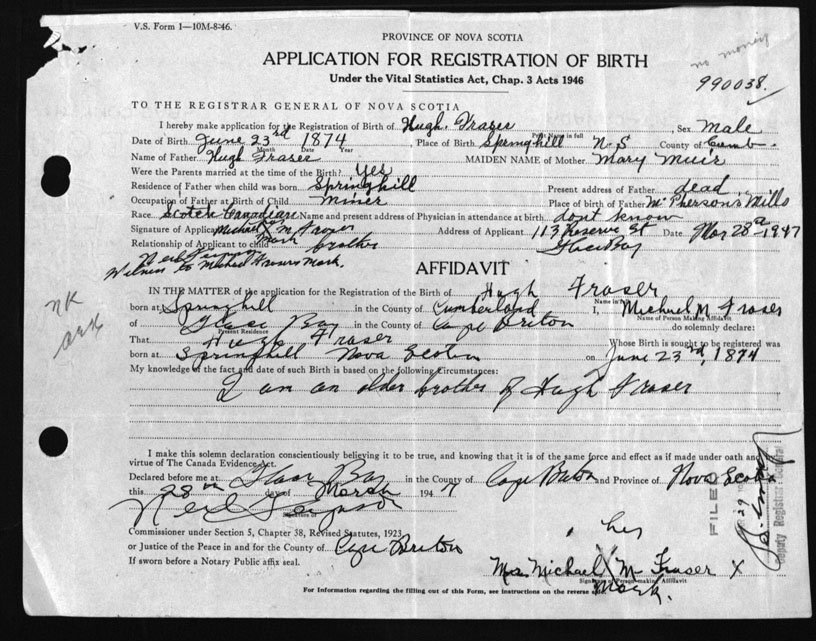 V.S. Form 1—10M-8-46.
PROVINCE OF NOVA SCOTIA
no money
APPLICATION FOR REGISTRATION OF BIRTH
Under the Vital Statistics Act, Chap. 3 Acts 1946
990038
TO THE REGISTRAR GENERAL OF NOVA SCOTIA
I hereby make application for the Registration of Birth of Hugh Fraser, Sex Male
Print Name in full
Date of Birth June 23rd 1874 Place of Birth Springhill N-S County of Cumb.
Month Date Year
Name of Father Hugh Fraser MAIDEN NAME of Mother Mary Muir
Were the Parents married at the time of the Birth? Yes
Residence of Father when child was born Springhill Present address of Father dead
Occupation of Father at Birth of Child Miner Place of Birth of Father McPherson's Mills
Race Scotch Canadian Name and present address of Physician in attendance at birth dont know
Signature of Applicant Michael his M Fraser Address of Applicant 113 Reserve St Date Mar 28th 1947
mark
Relationship of Applicant to child brother Glace Bay
Neil Ferguson
Witness to Michael Frasers Mark.
AFFIDAVIT
IN THE MATTER of the application for the Registration of Birth of Hugh Fraser
Name in full
born at Springhill in the County of Cumberland I, Michael M Fraser
Name of Person Making Affidavit
of Glace Bay in the County of Cape Breton do solemnly declare:
Present Residence
That Hugh Fraser Whose Birth is sought to be registered was
born at Springhill Nova Scotia on June 23rd, 1874
My knowledge of the fact and date of such Birth is based on the following Circumstances:
I am an older brother of Hugh Fraser
I make this solemn declaration conscientiously believing it to be true, and knowing that it is of the same force and effect as if made under oath and by
virtue of The Canada Evidence Act.
Declared before me at Glace Bay in the County of Cape Breton and Province of Nova Scotia
this 28th day of March 1947
Neil Ferguson
Signature of
Commissioner under Section 5, Chapter 38, Revised Statutes, 1923
or Justice of the Peace in and for the County of Cape Breton
If sworn before a Notary Public affix seal.
her
Mrs. Michael X M Fraser X
Signature of Person making Affidavit
Mark.
For Information regarding the filling out of this Form, see instructions on the reverse side
FILED
Deputy Registrar General